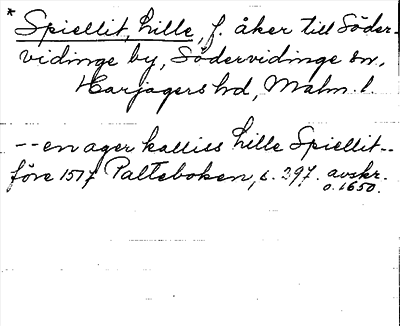 * Spiellit, hille, f. åker till Söder-
vidinge by, Södervidinge sn,
Harjagers hd, Malm. l.
-- en ager kalliss hille Spiellit --
före 1517 Palteboken, s. 297. avskr.
o. 1650.